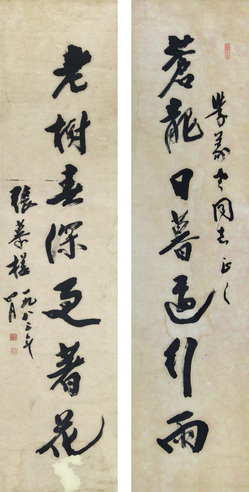 蒼龍日暮還行雨
學義老同志正之
老樹春深更著花
張慕槎
一九八三年
四月